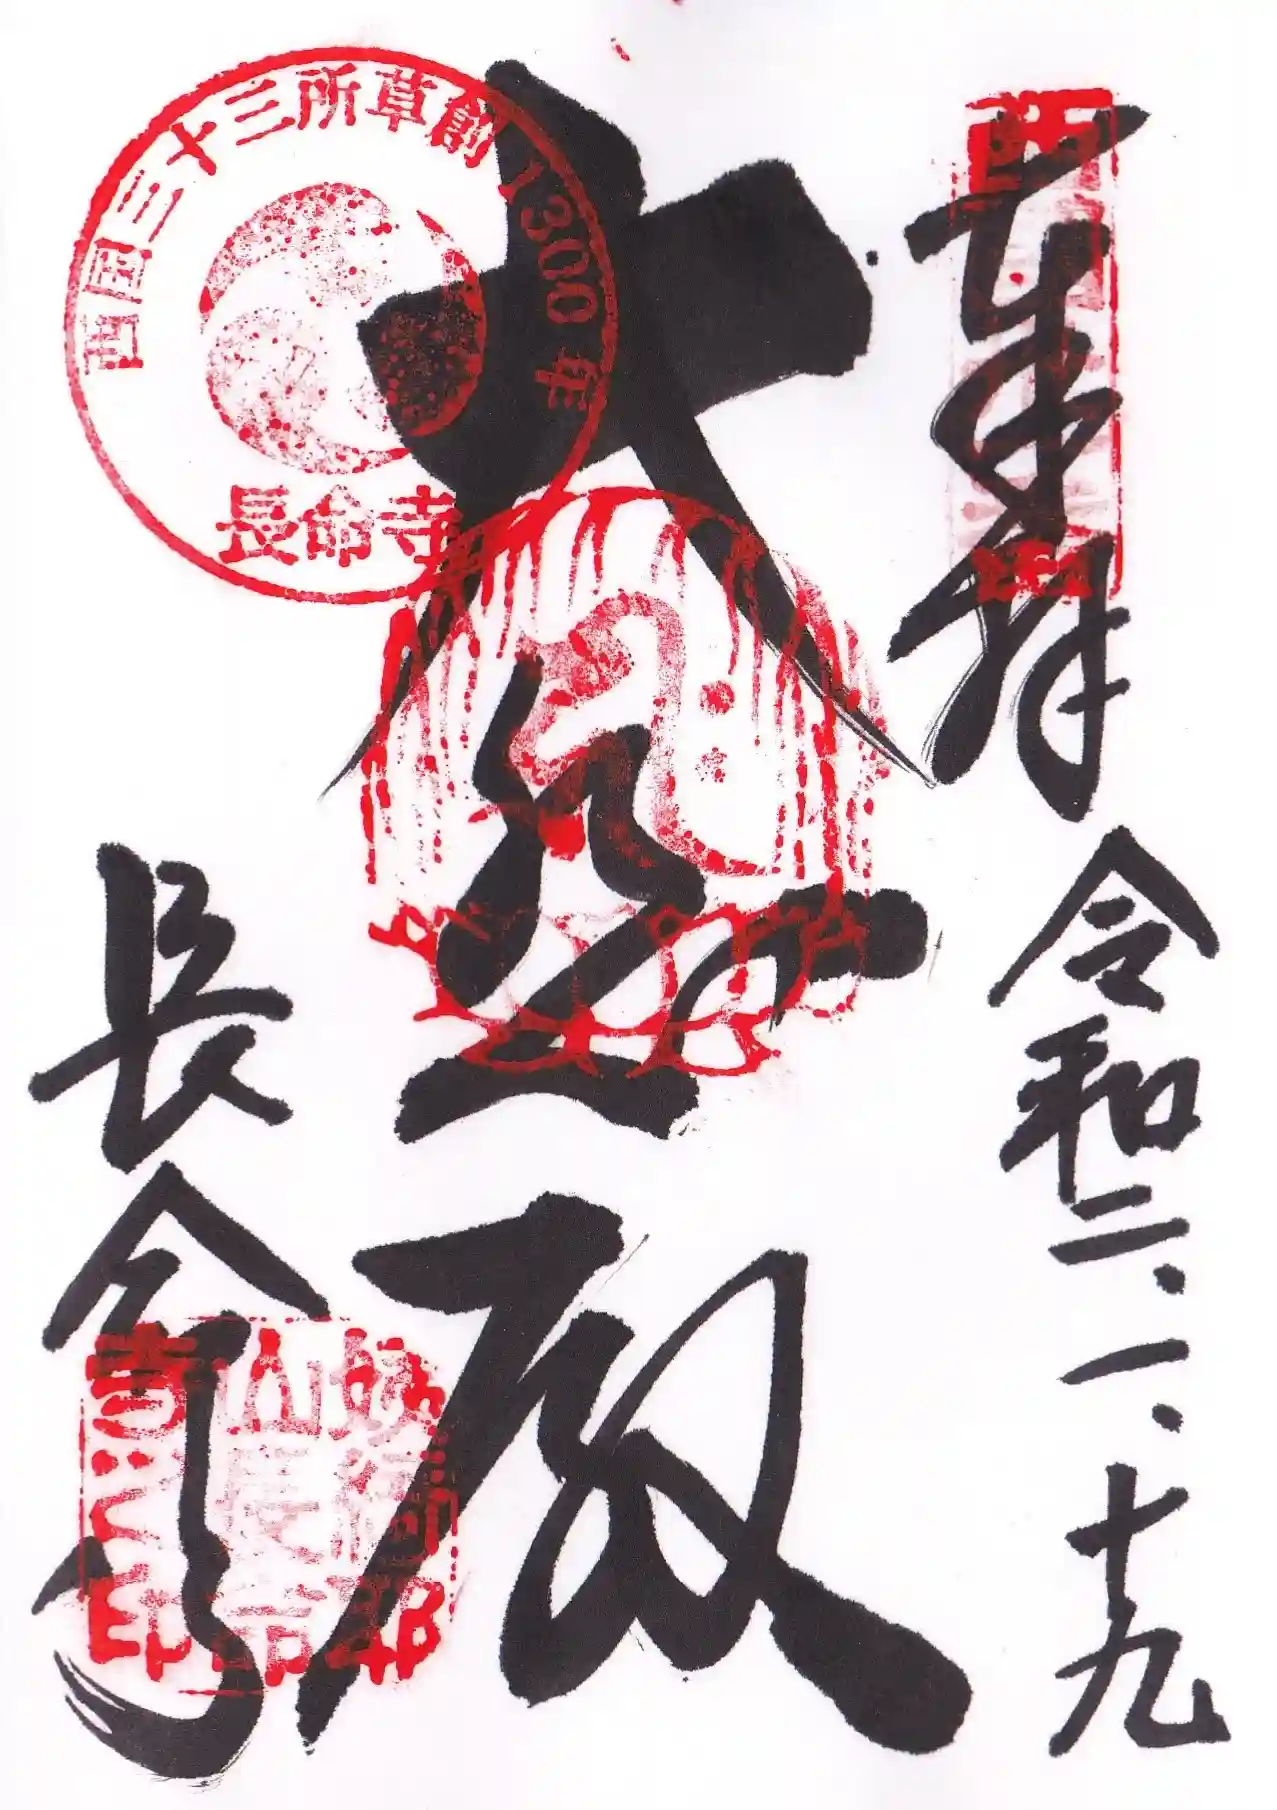 奉拝
令和二、一、十九
大悲殿
長命寺
西国三十三所草創1300年
長命寺